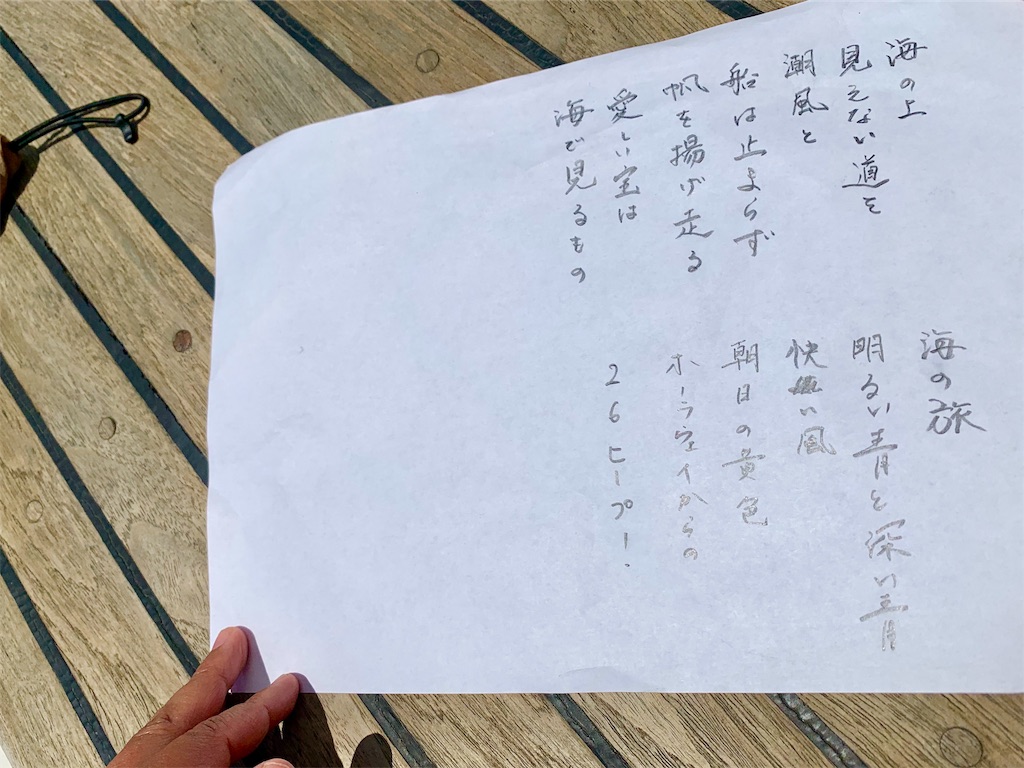 海の上
見えない道を
潮風と
船は止まらず
帆を揚げ走る
愛しい宝は
海で見るもの
海の旅
明るい青と深い青
快い風
朝日の黄色
ホーラウェイからの
26ヒープー.